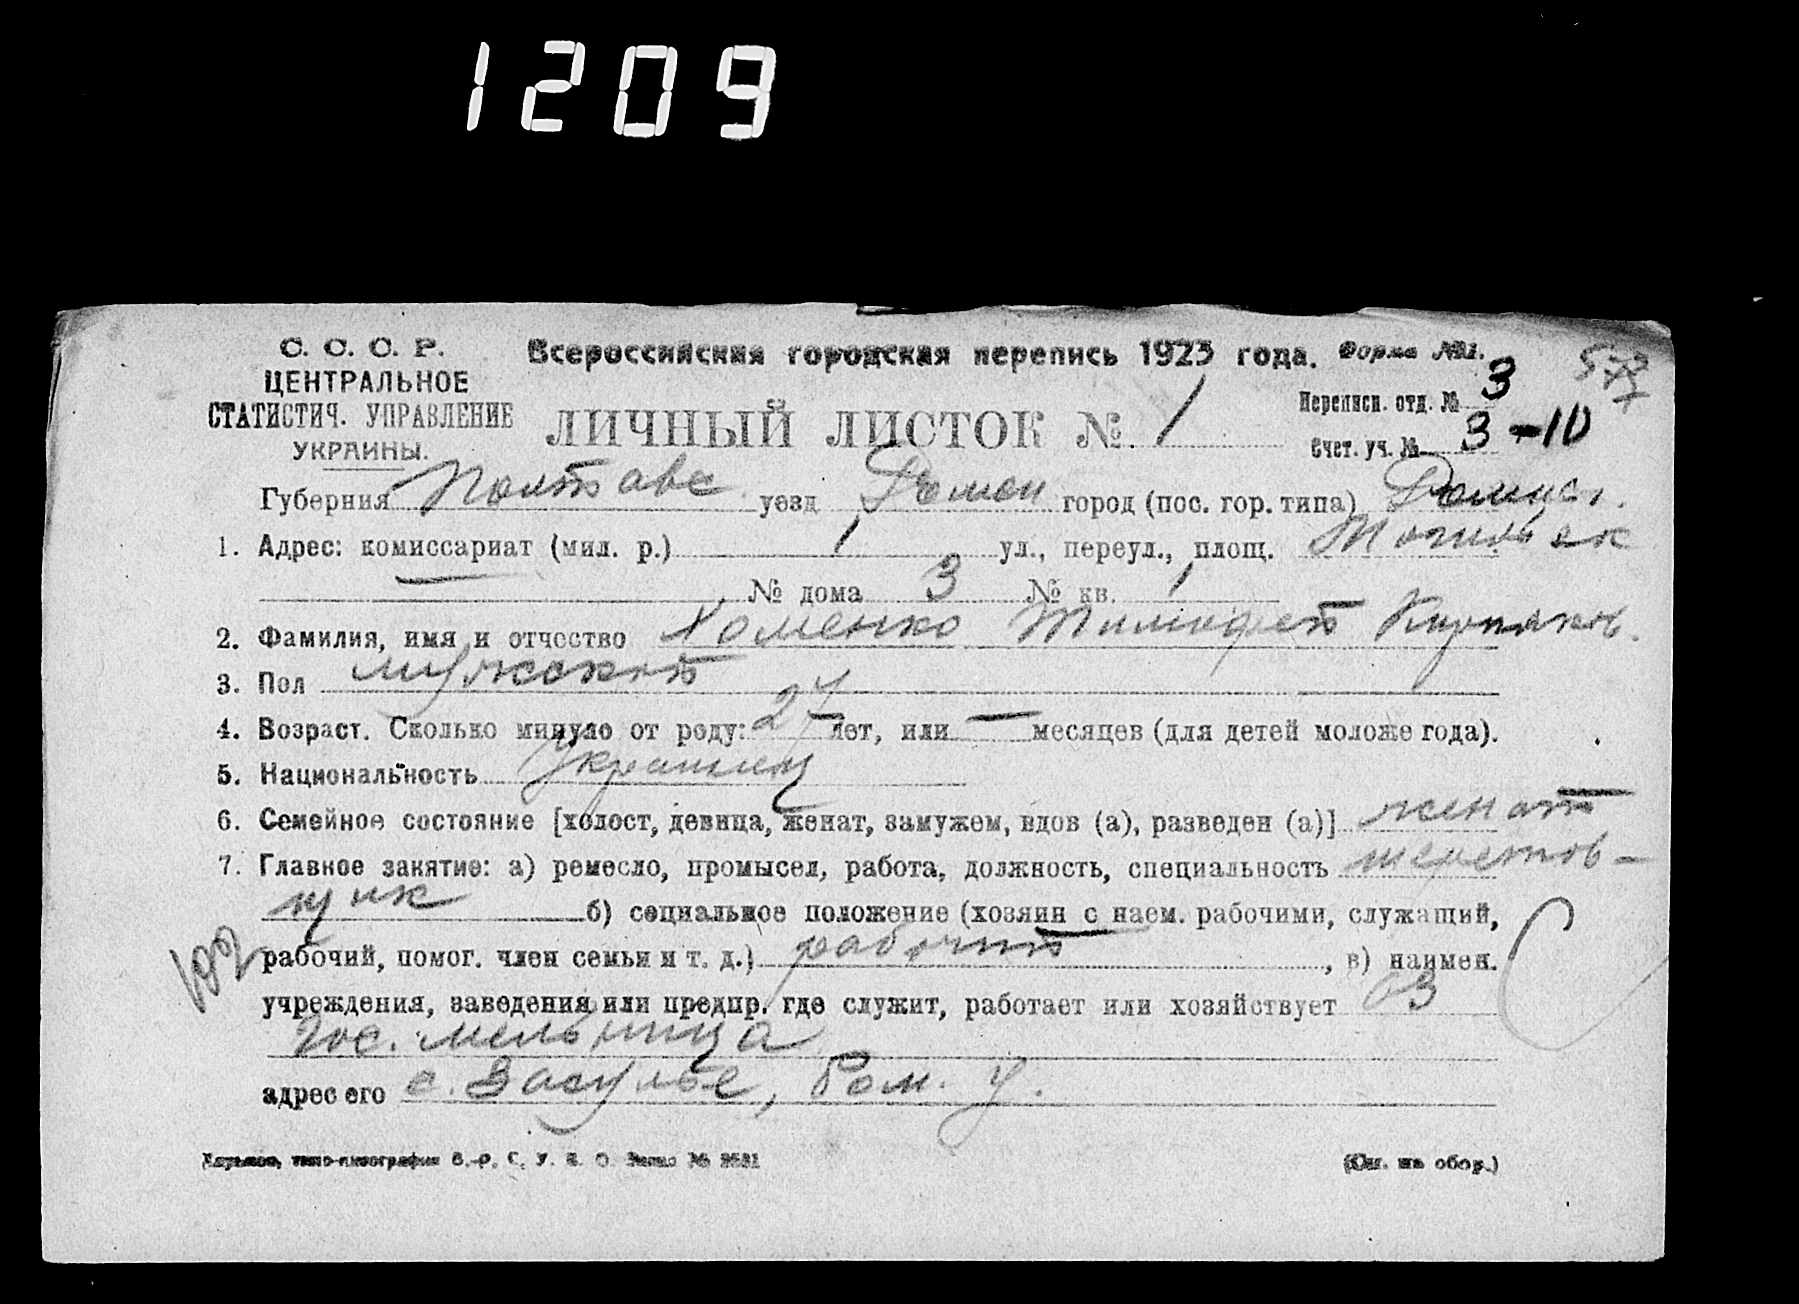 1209
С. С. С. Р.
ЦЕНТРАЛЬНОЕ
СТАТИСТИЧ. УПРАВЛЕНИЕ
УКРАИНЫ.
Всероссийская городская перепись 1923 года. Форма №1.
ЛИЧНЫЙ ЛИСТОК № 1
Переписн. отд. № 3
Счет. уч. № 3-10
Губерния Полтавс уезд Ромен город (пос. гор. типа)
1. Адрес: комиссариат (мил. р.) 1 ул., переул., площ.
— № дома 3 № кв. 1
2. Фамилия, имя и отчество Хоменко Тимофей Кирияков.
3. Пол мужской
4. Возраст. Сколько минуло от роду: 27 лет, или — месяцев (для детей моложе года).
5. Национальность Украинец
6. Семейное состояние [холост, девица, женат, замужем, вдов (а), разведен (а)] женат
7. Главное занятие: а) ремесло, промысел, работа, должность, специальность шеретов-
щик б) социальное положение (хозяин с наем. рабочими, служащий,
рабочий, помог. член семьи и т. д.) рабочий, в) наимен.
учреждения, заведения или предпр. где служит, работает или хозяйствует 63
Гос. мельница
адрес его с. Засулье, Ром. у.
(См. на обор.)